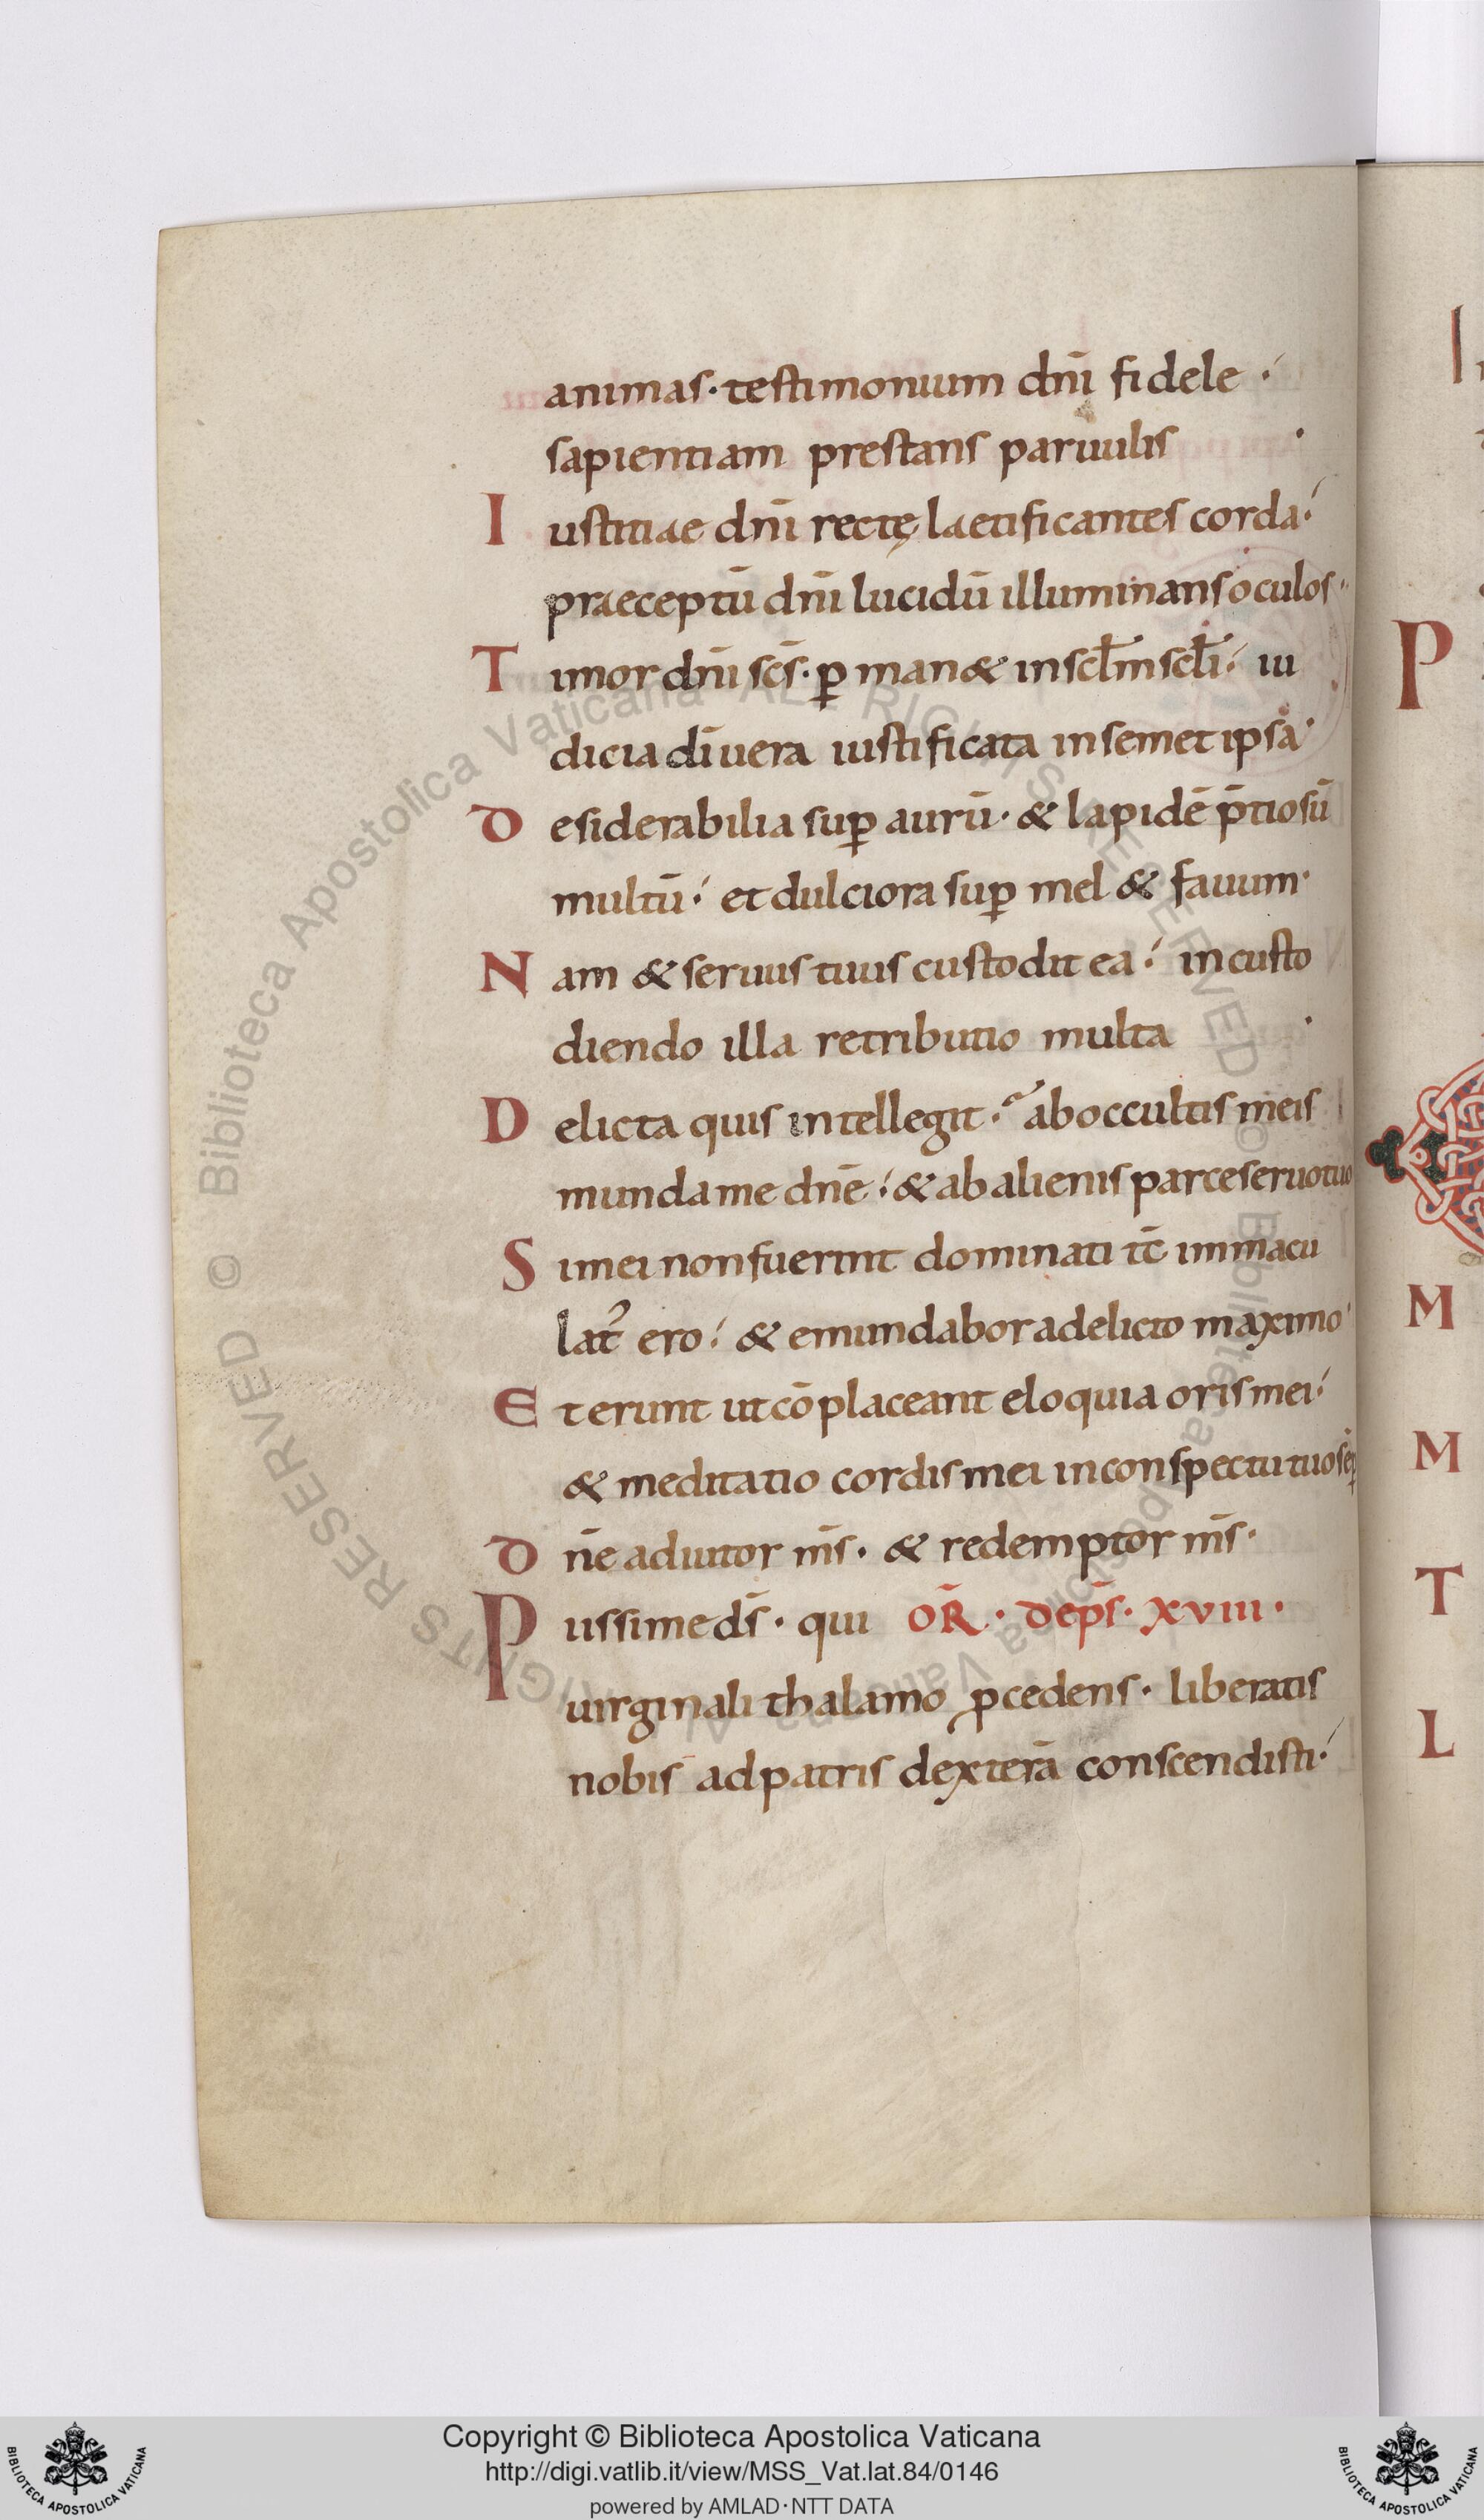 animas· testimonium dnī fidele ·
sapientiam prestans paruulis ·
Iustitiae dnī rectę laetificantes corda·
praeceptū dnī lucidū illuminans oculos·
Timor dnī scs̄· ꝑman& in scłm scłi· iu
dicia dī uera iustificata in semet ipsa·
Desiderabilia suꝑ aurū· & lapidē p̄tiosū
multū· et dulciora suꝑ mel & fauum·
Nam & seruus tuus custodit ea· in custo
diendo illa retributio multa ·
Delicta quis intellegit· ab occultis meis
munda me dnē· & ab alienis parce seruo tuo
Si mei non fuerint dominati tc̄ immacu
lat᾿ ero· & emundabor a delicto maximo
Et erunt ut cōplaceant eloquia oris mei·
& meditatio cordis mei in conspectu tuo sēꝑ
Dn̄e adiutor ms̄· & redemptor ms̄·
Piissime ds̄· qui OR̄· DE PS̄· XVIII·
uirginali thalamo ꝓcedens· liberatis
nobis ad patris dexterā conscendisti·
I
P
M
M
T
L
© Biblioteca Apostolica Vaticana ALL RIGHTS RESERVED © Biblioteca Apostolica Vaticana ALL RIGHTS RESERVED
Copyright © Biblioteca Apostolica Vaticana
http://digi.vatlib.it/view/MSS_Vat.lat.84/0146
powered by AMLAD·NTT DATA
BIBLIOTECA APOSTOLICA VATICANA
BIBLIOTECA APOSTOLICA VATICANA